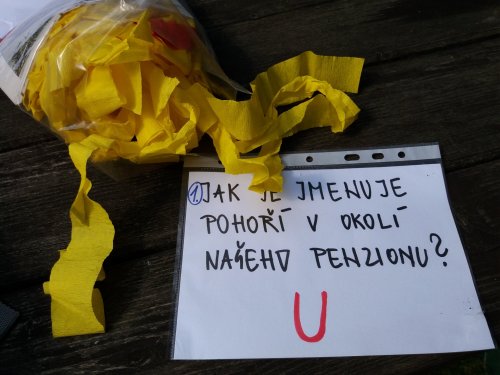 1. JAK JE JMENUJE
POHOŘÍ V OKOLÍ
NAŠEHO PENZIONU?
U